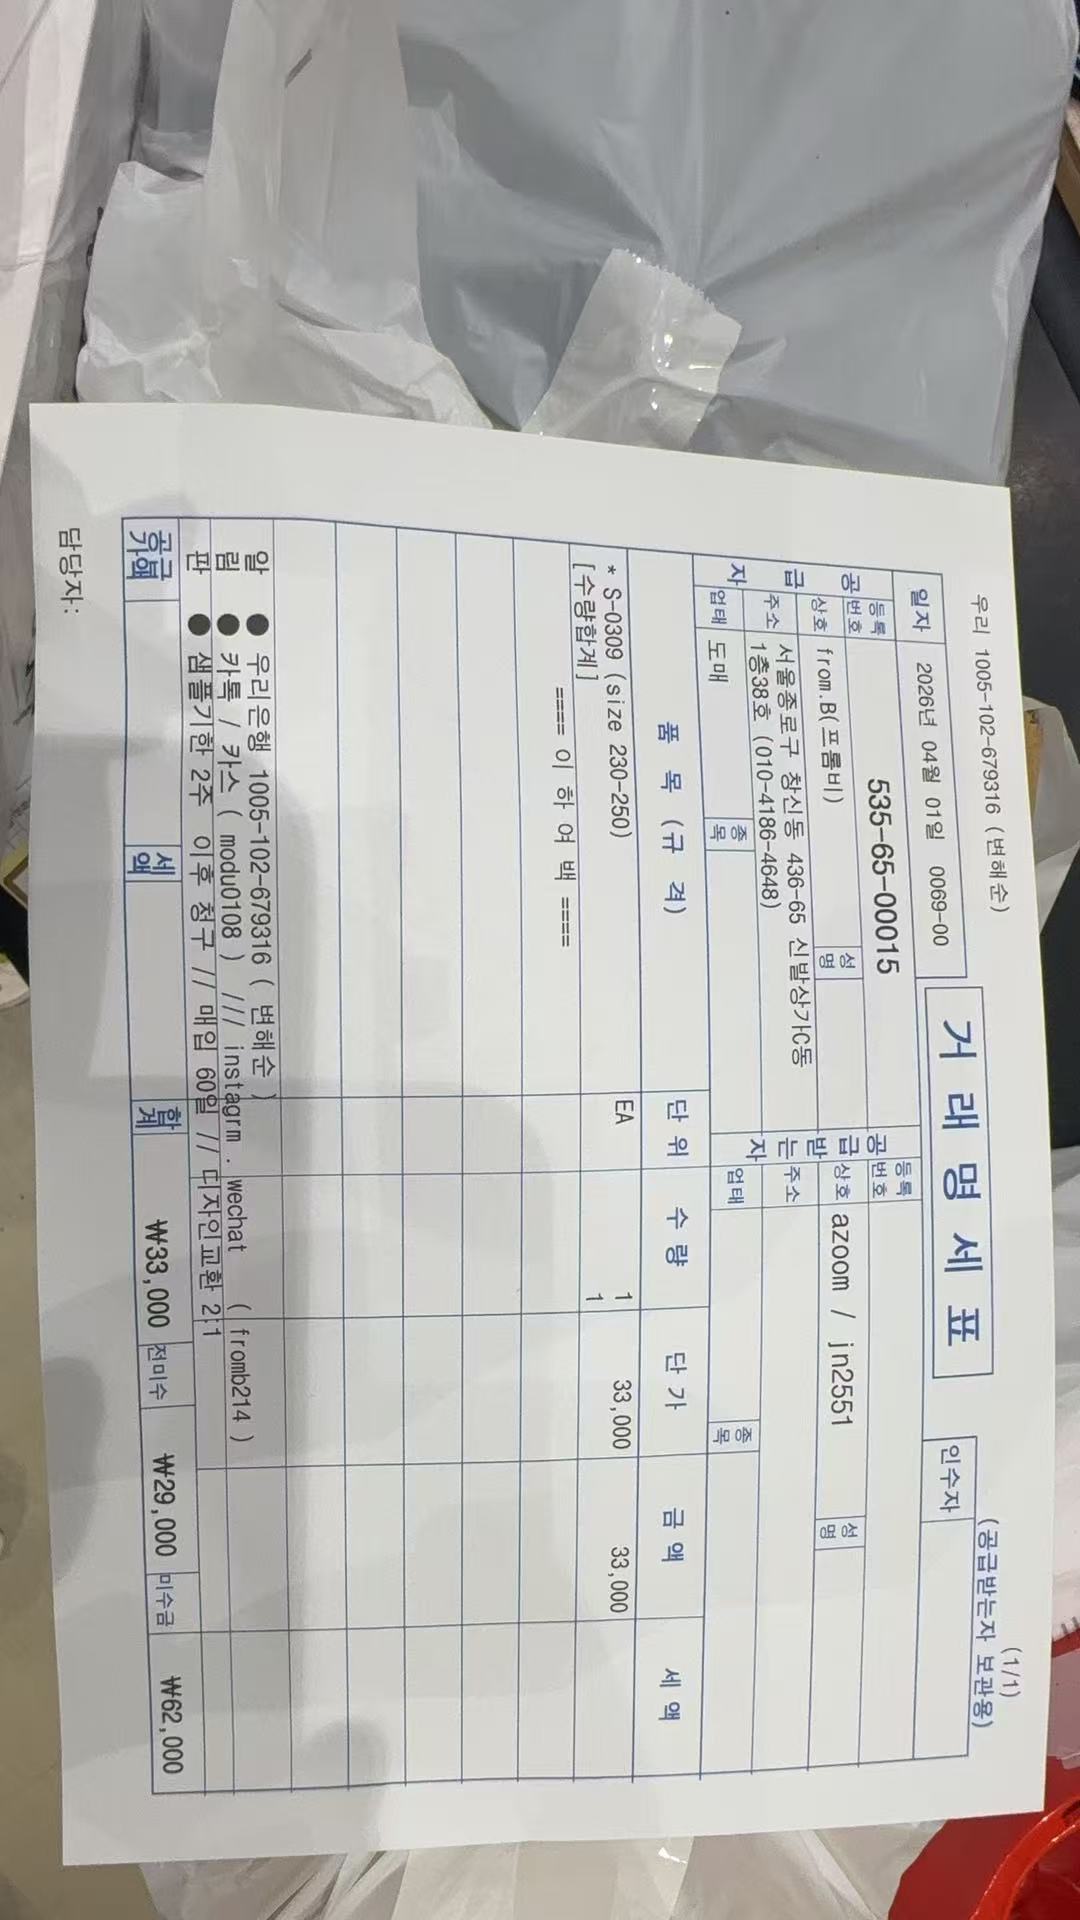 우리 1005-102-679316 (변해순)
(1/1)
(공급받는자 보관용)
일자 2026년 04월 01일 0069-00
거 래 명 세 표
인수자
공급자
등록번호 535-65-00015
상호 from.B(프롬비) 성명
주소 서울종로구 창신동 436-65 신발상가C동
1층38호 (010-4186-4648)
업태 도매 종목
공급받는자
등록번호
상호 azoom / jn2551 성명
주소
업태 종목
품 목 (규 격) 단 위 수 량 단 가 금 액 세 액
* S-0309 (size 230-250) EA 1 33,000 33,000
[수량합계] 1
==== 이 하 여 백 ====
알림판
● 우리은행 1005-102-679316 ( 변해순 )
● 카톡 / 카스 ( modu0108 ) /// instagrm . wechat ( fromb214 )
● 샘플기한 2주 이후 청구 // 매입 60일 // 디자인교환 2:1
공급가액 세액 합계 ₩33,000 전미수 ₩29,000 미수금 ₩62,000
담당자: